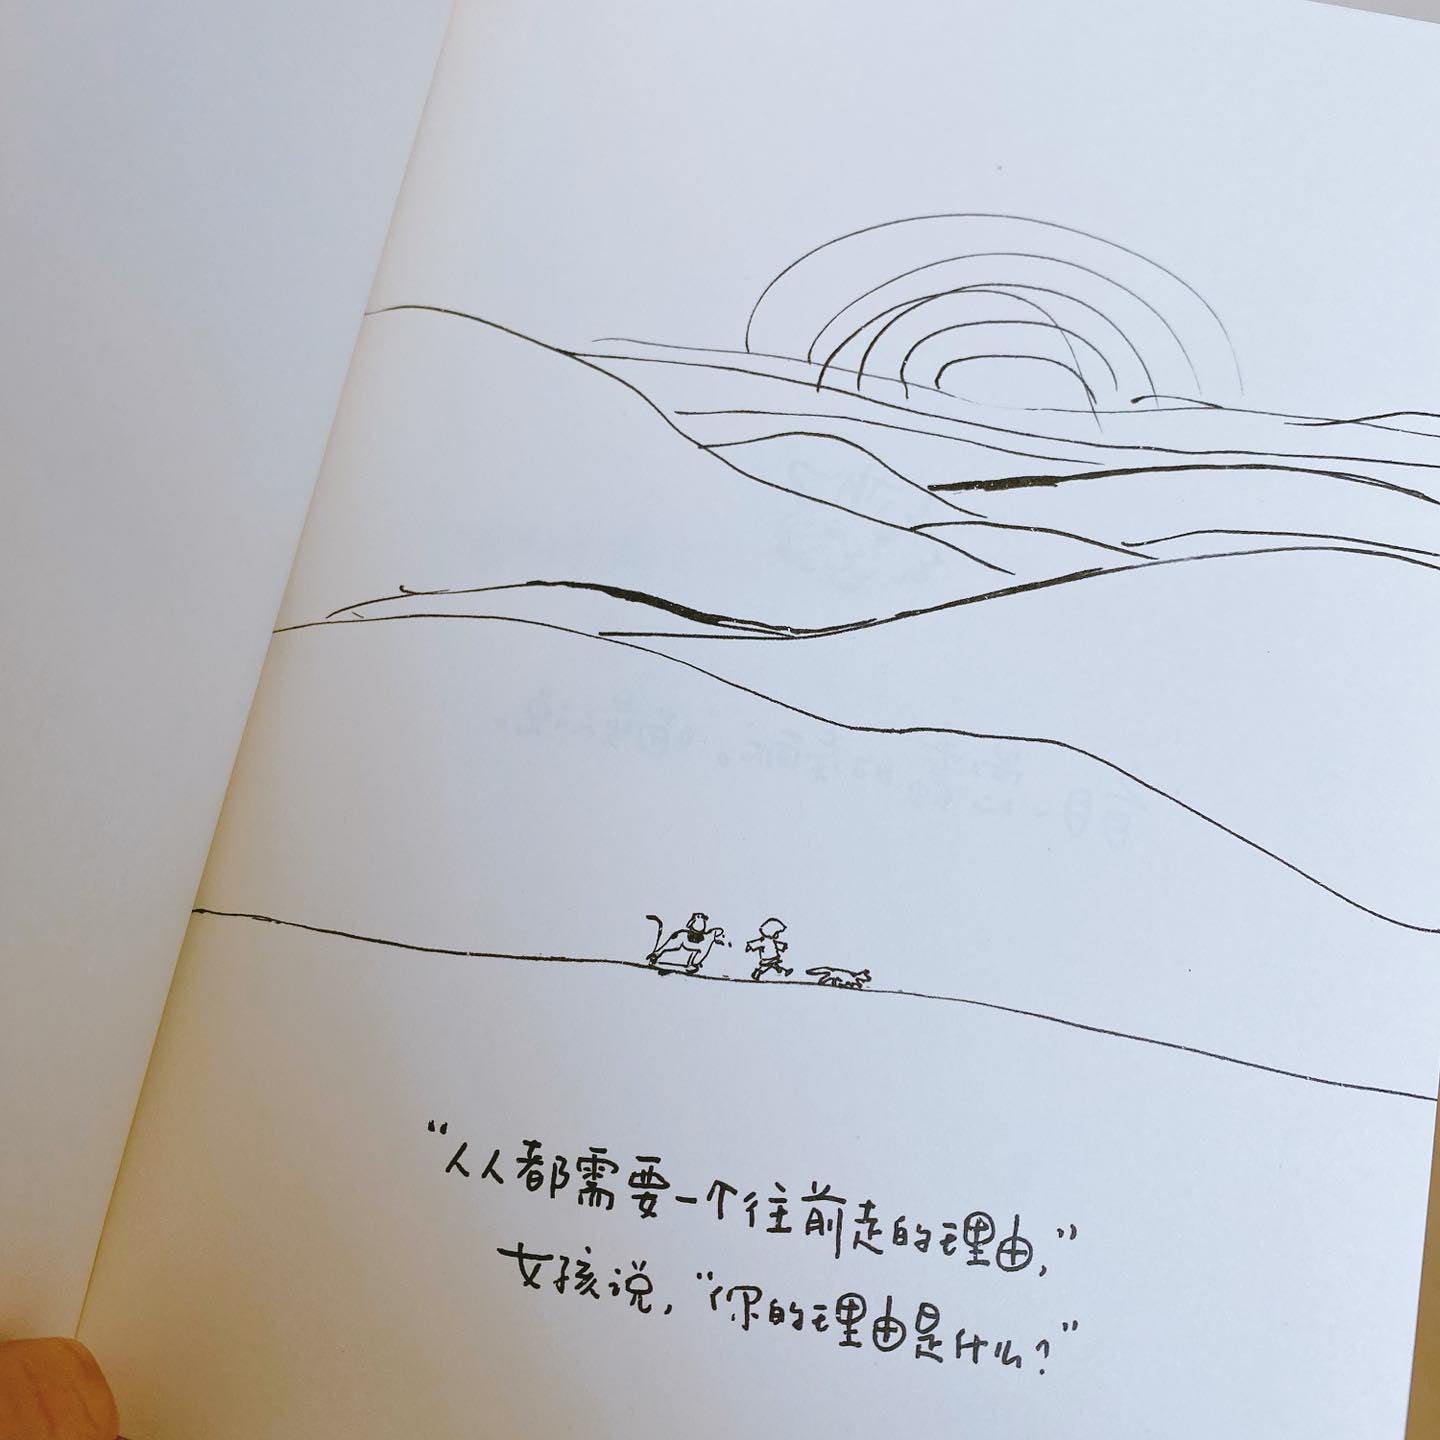 “人人都需要一个往前走的理由,”
女孩说,“你的理由是什么?”